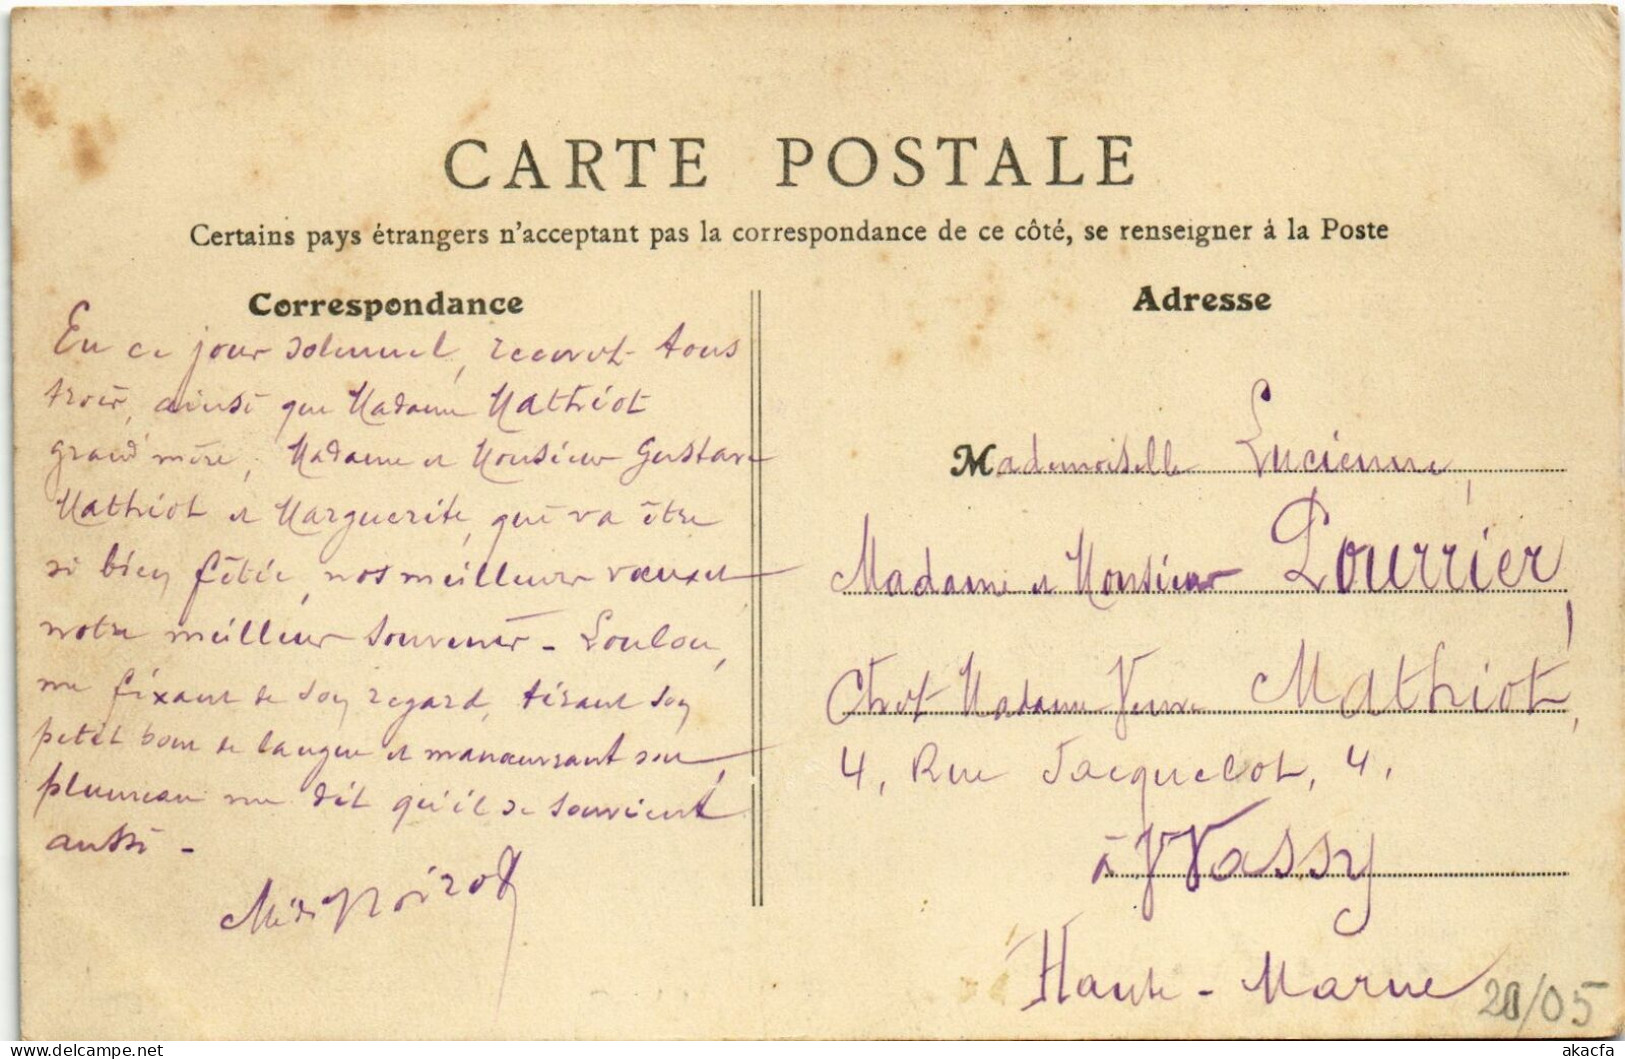 CARTE POSTALE
Certains pays étrangers n'acceptant pas la correspondance de ce côté, se renseigner à la Poste
Correspondance
En ce jour solennel, recevez tous
trois, ainsi que Madame Mathiot
grand'mère, Madame et Monsieur Gustave
Mathiot et Marguerite, qui va être
si bien fêtée, nos meilleurs vœux et
notre meilleur souvenir - Loulou,
me fixant de son regard, tirant son
petit bout de langue et manœuvrant son
plumeau me dit qu'il se souvient
aussi -
Noirot
Adresse
Mademoiselle Lucienne,
Madame et Monsieur Pourrier
Chez Madame Veuve Mathiot,
4, Rue Jacquelot, 4,
à Wassy
Haute-Marne
20/05
akacfa